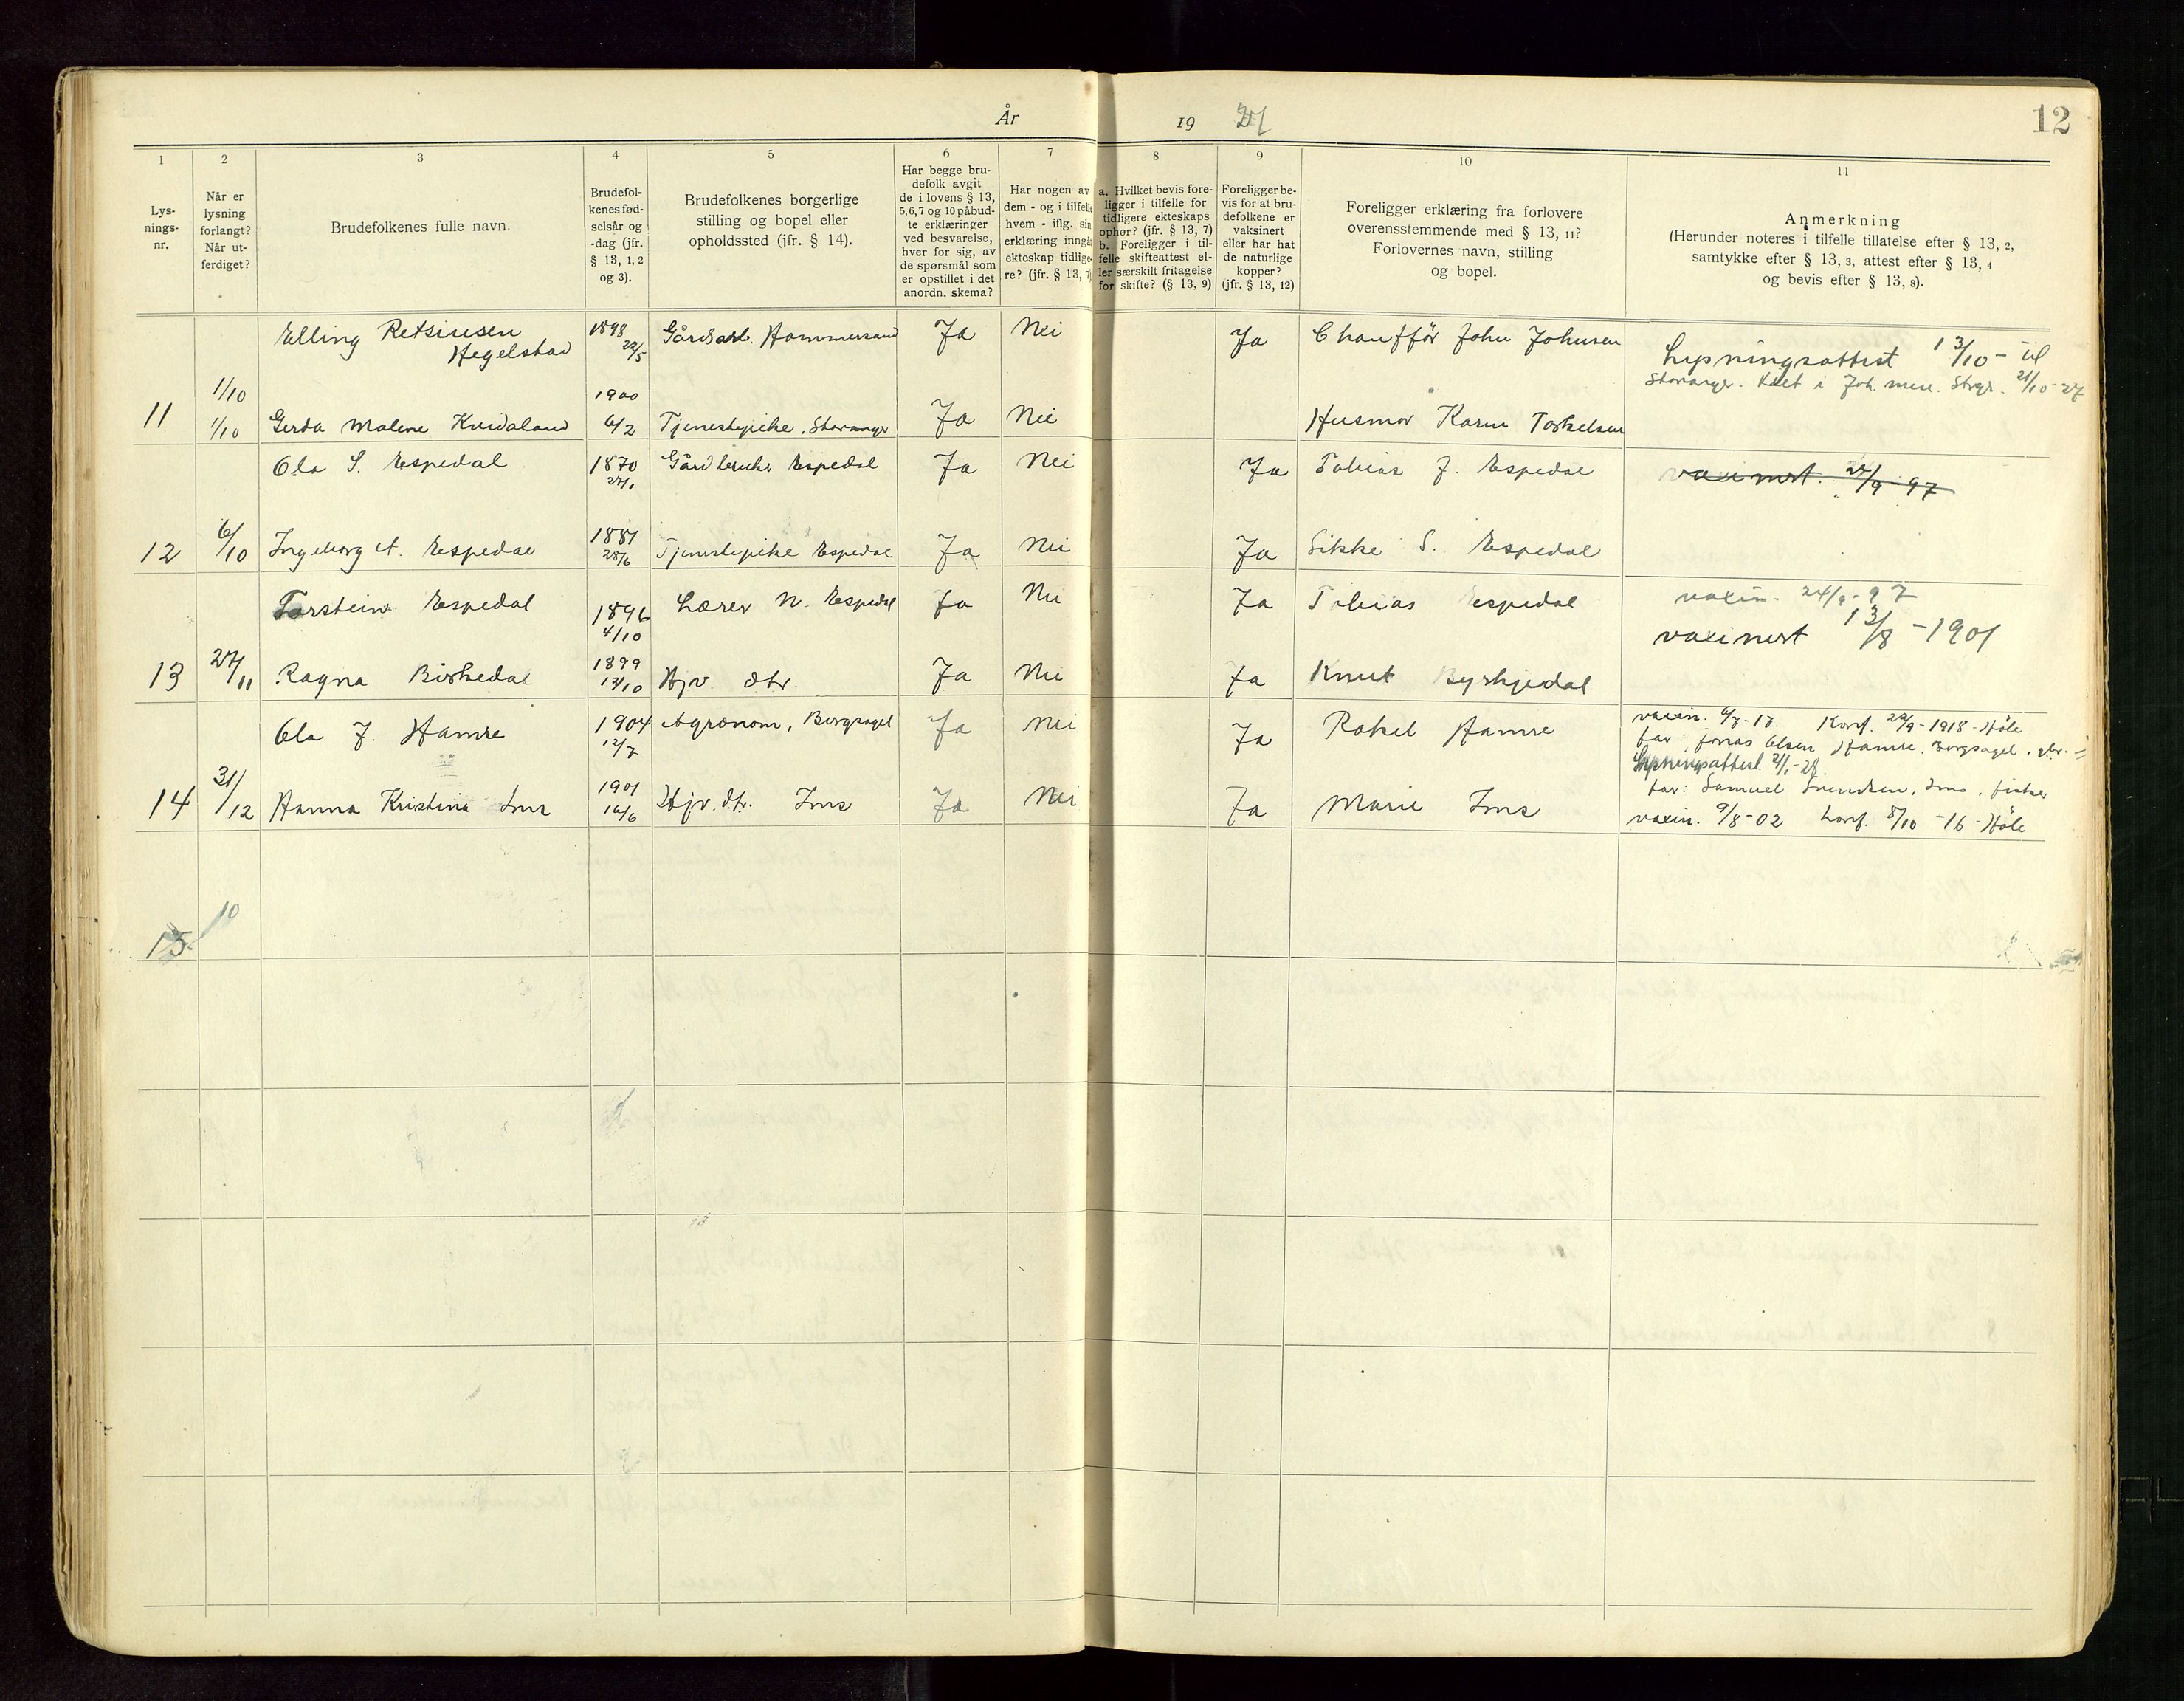 År 19 27
12
1
Lys-
nings-
nr.
2
Når er
lysning
forlangt?
Når ut-
ferdiget?
3
Brudefolkenes fulle navn.
4
Brudefol-
kenes fød-
selsår og
-dag (jfr.
§ 13, 1, 2
og 3).
5
Brudefolkenes borgerlige
stilling og bopel eller
opholdssted (jfr. § 14).
6
Har begge bru-
defolk avgit
de i lovens § 13,
5, 6, 7 og 10 påbud-
te erklæringer
ved besvarelse,
hver for sig, av
de spørsmål som
er opstillet i det
anordn. skema?
7
Har nogen av
dem - og i tilfelle
hvem - iflg. sin
erklæring inngåt
ekteskap tidlige-
re? (jfr. § 13, 7)
8
a. Hvilket bevis fore-
ligger i tilfelle for
tidligere ekteskaps
ophør? (jfr. § 13, 7)
b. Foreligger i til-
felle skifteattest el-
ler særskilt fritagelse
for skifte? (§ 13, 9)
9
Foreligger be-
vis for at bru-
defolkene er
vaksinert
eller har hat
de naturlige
kopper?
(jfr. § 13, 12)
10
Foreligger erklæring fra forlovere
overensstemmende med § 13, 11?
Forlovernes navn, stilling
og bopel.
11
Anmerkning
(Herunder noteres i tilfelle tillatelse efter § 13, 2,
samtykke efter § 13, 3, attest efter § 13, 4
og bevis efter § 13, 8).
Elling Retsiusen Hegelstad 1898 22/5 Gårdsarb. Hammersand Ja Nei Ja Chauffför John Johnsen Lysningsattest 13/10 - til
Stavanger. Viet i Joh. men. Stvgr. 21/10-27
11 1/10 1/10 Gerda Malene Kvidaland 1900 6/2 Tjenestepike. Stavanger Ja Nei Husmor Karen Torkelsen
Ola S. Espedal 1870 27/1 Gårdbruker Espedal Ja Nei Ja Tobias J. Espedal vaxinert. 24/9 97
12 6/10 Ingeborg A. Espedal 1881 28/6 Tjenestepike Espedal Ja Nei Ja Sikke S. Espedal
Torstein Espedal 1896 4/10 Lærer N. Espedal Ja Nei Ja Tobias Espedal vaxin. 24/9-97
vaxinert 13/8-1901
13 27/11 Ragna Birkedal 1899 13/10 Hjv. dtr. Ja Nei Ja Knut Byrkjedal
Ola J. Hamre 1904 12/7 Agronom, Bergsagel Ja Nei Ja Rakel Hamre vaxin. 6/7-17. Konf. 22/9-1918-Høle
far: Jonas Olsen Hamre, Bergsagel. gbr.
Lysningsattest 2/1-28.
14 31/12 Hanna Kristine Ims 1901 16/6 Hjv. dtr. Ims Ja Nei Ja Marie Ims far: Samuel Svendsen, Ims, fisker
vaxin. 9/8-02 konf. 8/10-16-Høle
15 10